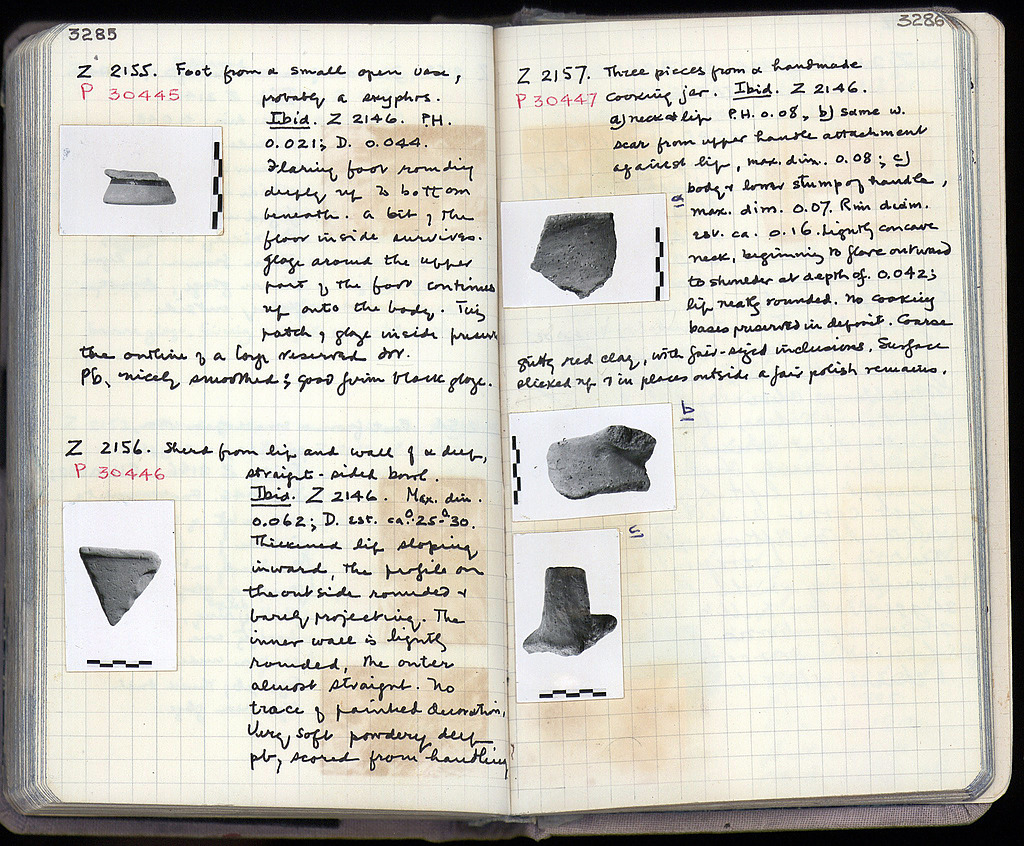 3285
Z 2155. Foot from a small open vase,
P 30445
probably a skyphos.
Ibid. Z 2146. P.H.
0.021; D. 0.044.
Flaring foot rounding
deeply up to bottom
beneath. A bit of the
floor inside survives.
Glaze around the upper
part of the foot continues
up onto the body. Tiny
patch of glaze inside preserves
the outline of a large reserved dot.
Pb, nicely smoothed; good firm black glaze.
Z 2156. Sherd from lip and wall of a deep,
P 30446
straight-sided bowl.
Ibid. Z 2146. Max. dim.
0.062; D. est. ca. 0.25-0.30.
Thickened lip sloping
inward, the profile on
the outside rounded &
barely projecting. The
inner wall is lightly
rounded, the outer
almost straight. No
trace of painted decoration.
Very soft powdery deep
pb, scored from handling
3286
Z 2157. Three pieces from a handmade
P 30447 cooking jar. Ibid. Z 2146.
a) neck & lip P.H. 0.08; b) same w.
scar from upper handle attachment
against lip, max. dim. 0.08; c)
body & lower stump of handle,
max. dim. 0.07. Rim diam.
est. ca. 0.16. Lightly concave
neck, beginning to flare outward
to shoulder at depth of 0.042;
lip neatly rounded. No cooking
bases preserved in deposit. Coarse
gritty red clay, with fair-sized inclusions. Surface
slicked up & in places outside a fair polish remains.
a
b
c